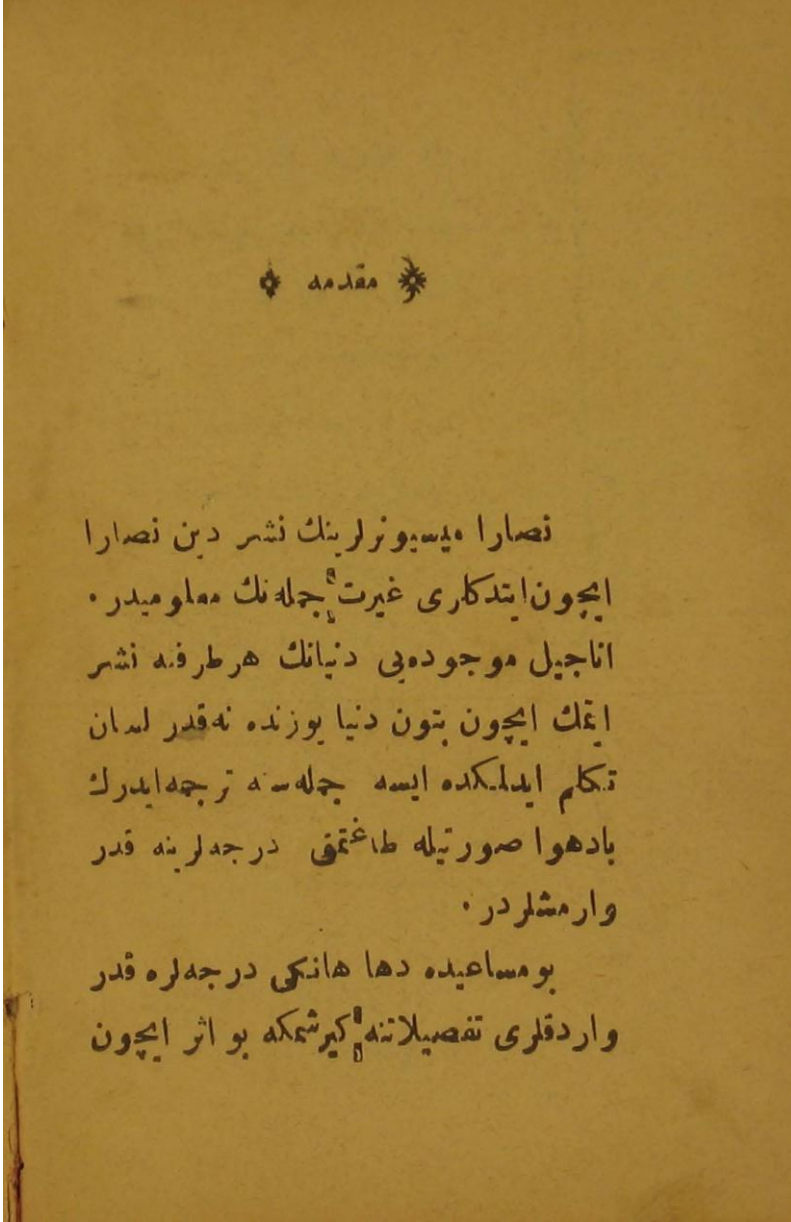 مقدمه
نصارا میسیونرلرینك نشر دین نصارا
ایچون ایتدكلری غیرت جمله‌نك معلومیدر .
اناجیل موجوده‌یی دنیانك هر طرفنه نشر
ایتمك ایچون بتون دنیا یوزنده نه‌قدر لسان
تكلم ایدلمكده ایسه جمله‌سنه ترجمه ایدرك
بادهوا صورتیله طاغتمق درجه‌لرینه قدر
وارمشلردر .
بو مساعیده دها هانكی درجه‌لره قدر
واردقلری تفصیلاتنه كیرشمكه بو اثر ایچون